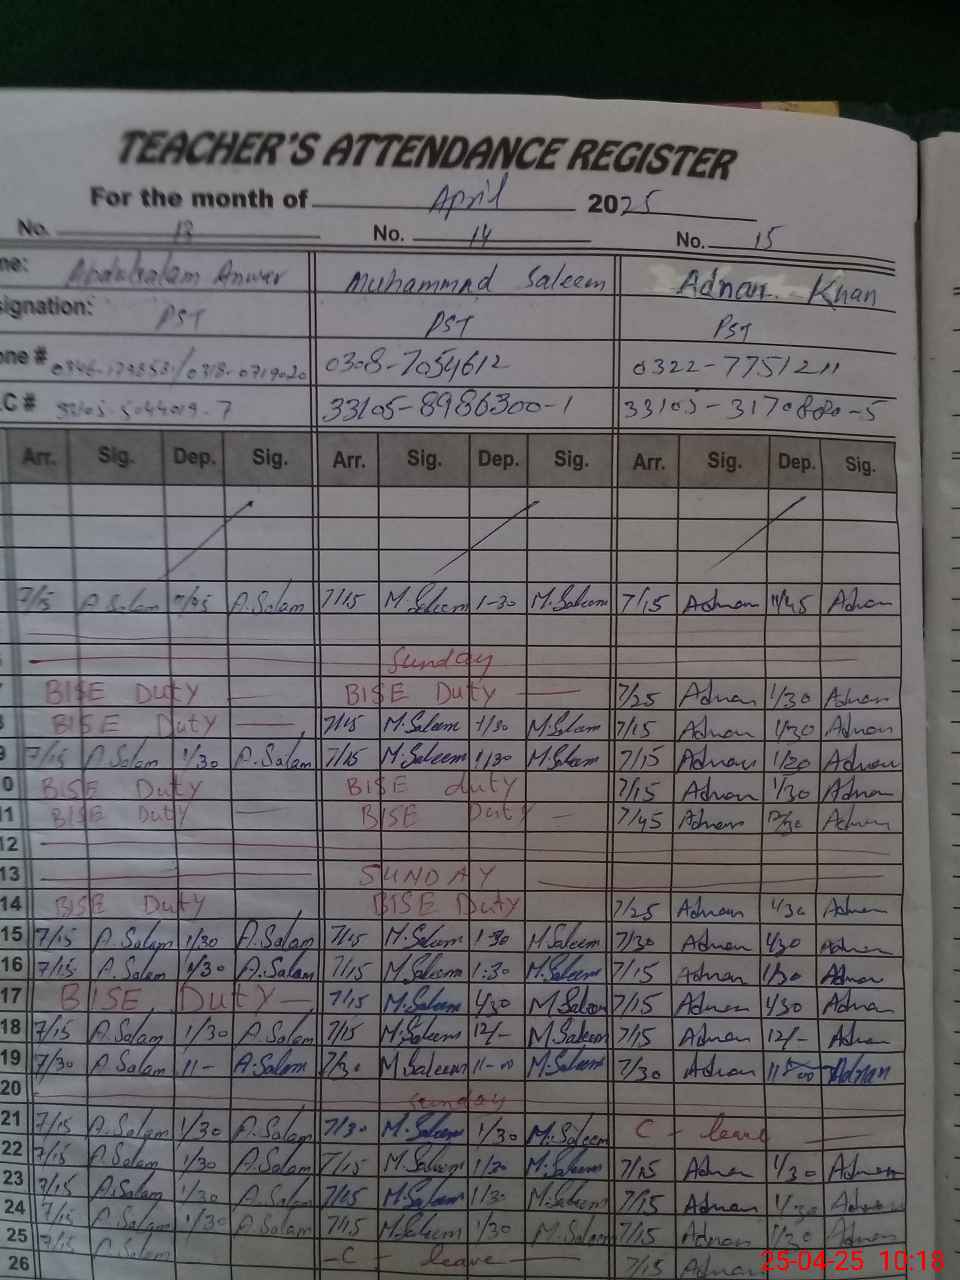 TEACHER'S ATTENDANCE REGISTER
For the month of April 2025
No. 13 No. 14 No. 15
me: Abdulsalam Anwer Muhammad Saleem Adnan Khan
signation: PST PST PST
one # 0308-7054612 0322-7751211
.C# 33105-8986300-1 33105-3170880-5
Arr. Sig. Dep. Sig. Arr. Sig. Dep. Sig. Arr. Sig. Dep. Sig.
7/15 A.Salam A.Salam 7/15 M.Saleem 1-30 M.Saleem 7/15 Adnan 11/45 Adnan
Sunday
BISE Duty BISE Duty 7/25 Adnan 1/30 Adnan
BISE Duty 7/15 M.Saleem 1/30 M.Saleem 7/15 Adnan 1/30 Adnan
9 7/15 A.Salam 1/30 A.Salam 7/15 M.Saleem 1/30 M.Saleem 7/15 Adnan 1/20 Adnan
0 BISE Duty BISE duty 7/15 Adnan 1/30 Adnan
11 BISE Duty BISE Duty 7/45 Adnan 12/30 Adnan
12
13 SUNDAY
14 BISE Duty BISE Duty 7/25 Adnan 1/30 Adnan
15 7/15 A.Salam 1/30 A.Salam 7/15 M.Saleem 1-30 M.Saleem 7/30 Adnan 1/30 Adnan
16 7/15 A.Salam 1/30 A.Salam 7/15 M.Saleem 1:30 M.Saleem 7/15 Adnan 1/30 Adnan
17 BISE Duty 7/15 M.Saleem 1/30 M.Saleem 7/15 Adnan 1/30 Adnan
18 7/15 A.Salam 1/30 A.Salam 7/15 M.Saleem 12/- M.Saleem 7/15 Adnan 12/- Adnan
19 7/30 A.Salam 11- A.Salam 7/30 M.Saleem 11-00 M.Saleem 7/30 Adnan Adnan
20 Sunday
21 7/15 A.Salam 1/30 A.Salam 7/30 M.Saleem 1/30 M.Saleem C - leave
22 7/15 A.Salam 1/30 A.Salam 7/15 M.Saleem 1/30 M.Saleem 7/15 Adnan 1/30 Adnan
23 7/15 A.Salam 1/30 A.Salam 7/15 M.Saleem 1/30 M.Saleem 7/15 Adnan 1/30 Adnan
24 7/15 A.Salam 1/30 A.Salam 7/15 M.Saleem 1/30 M.Saleem 7/15 Adnan 1/30 Adnan
25 7/15 A.Salam -C - leave 7/15 Adnan
26
25-04-25 10:18